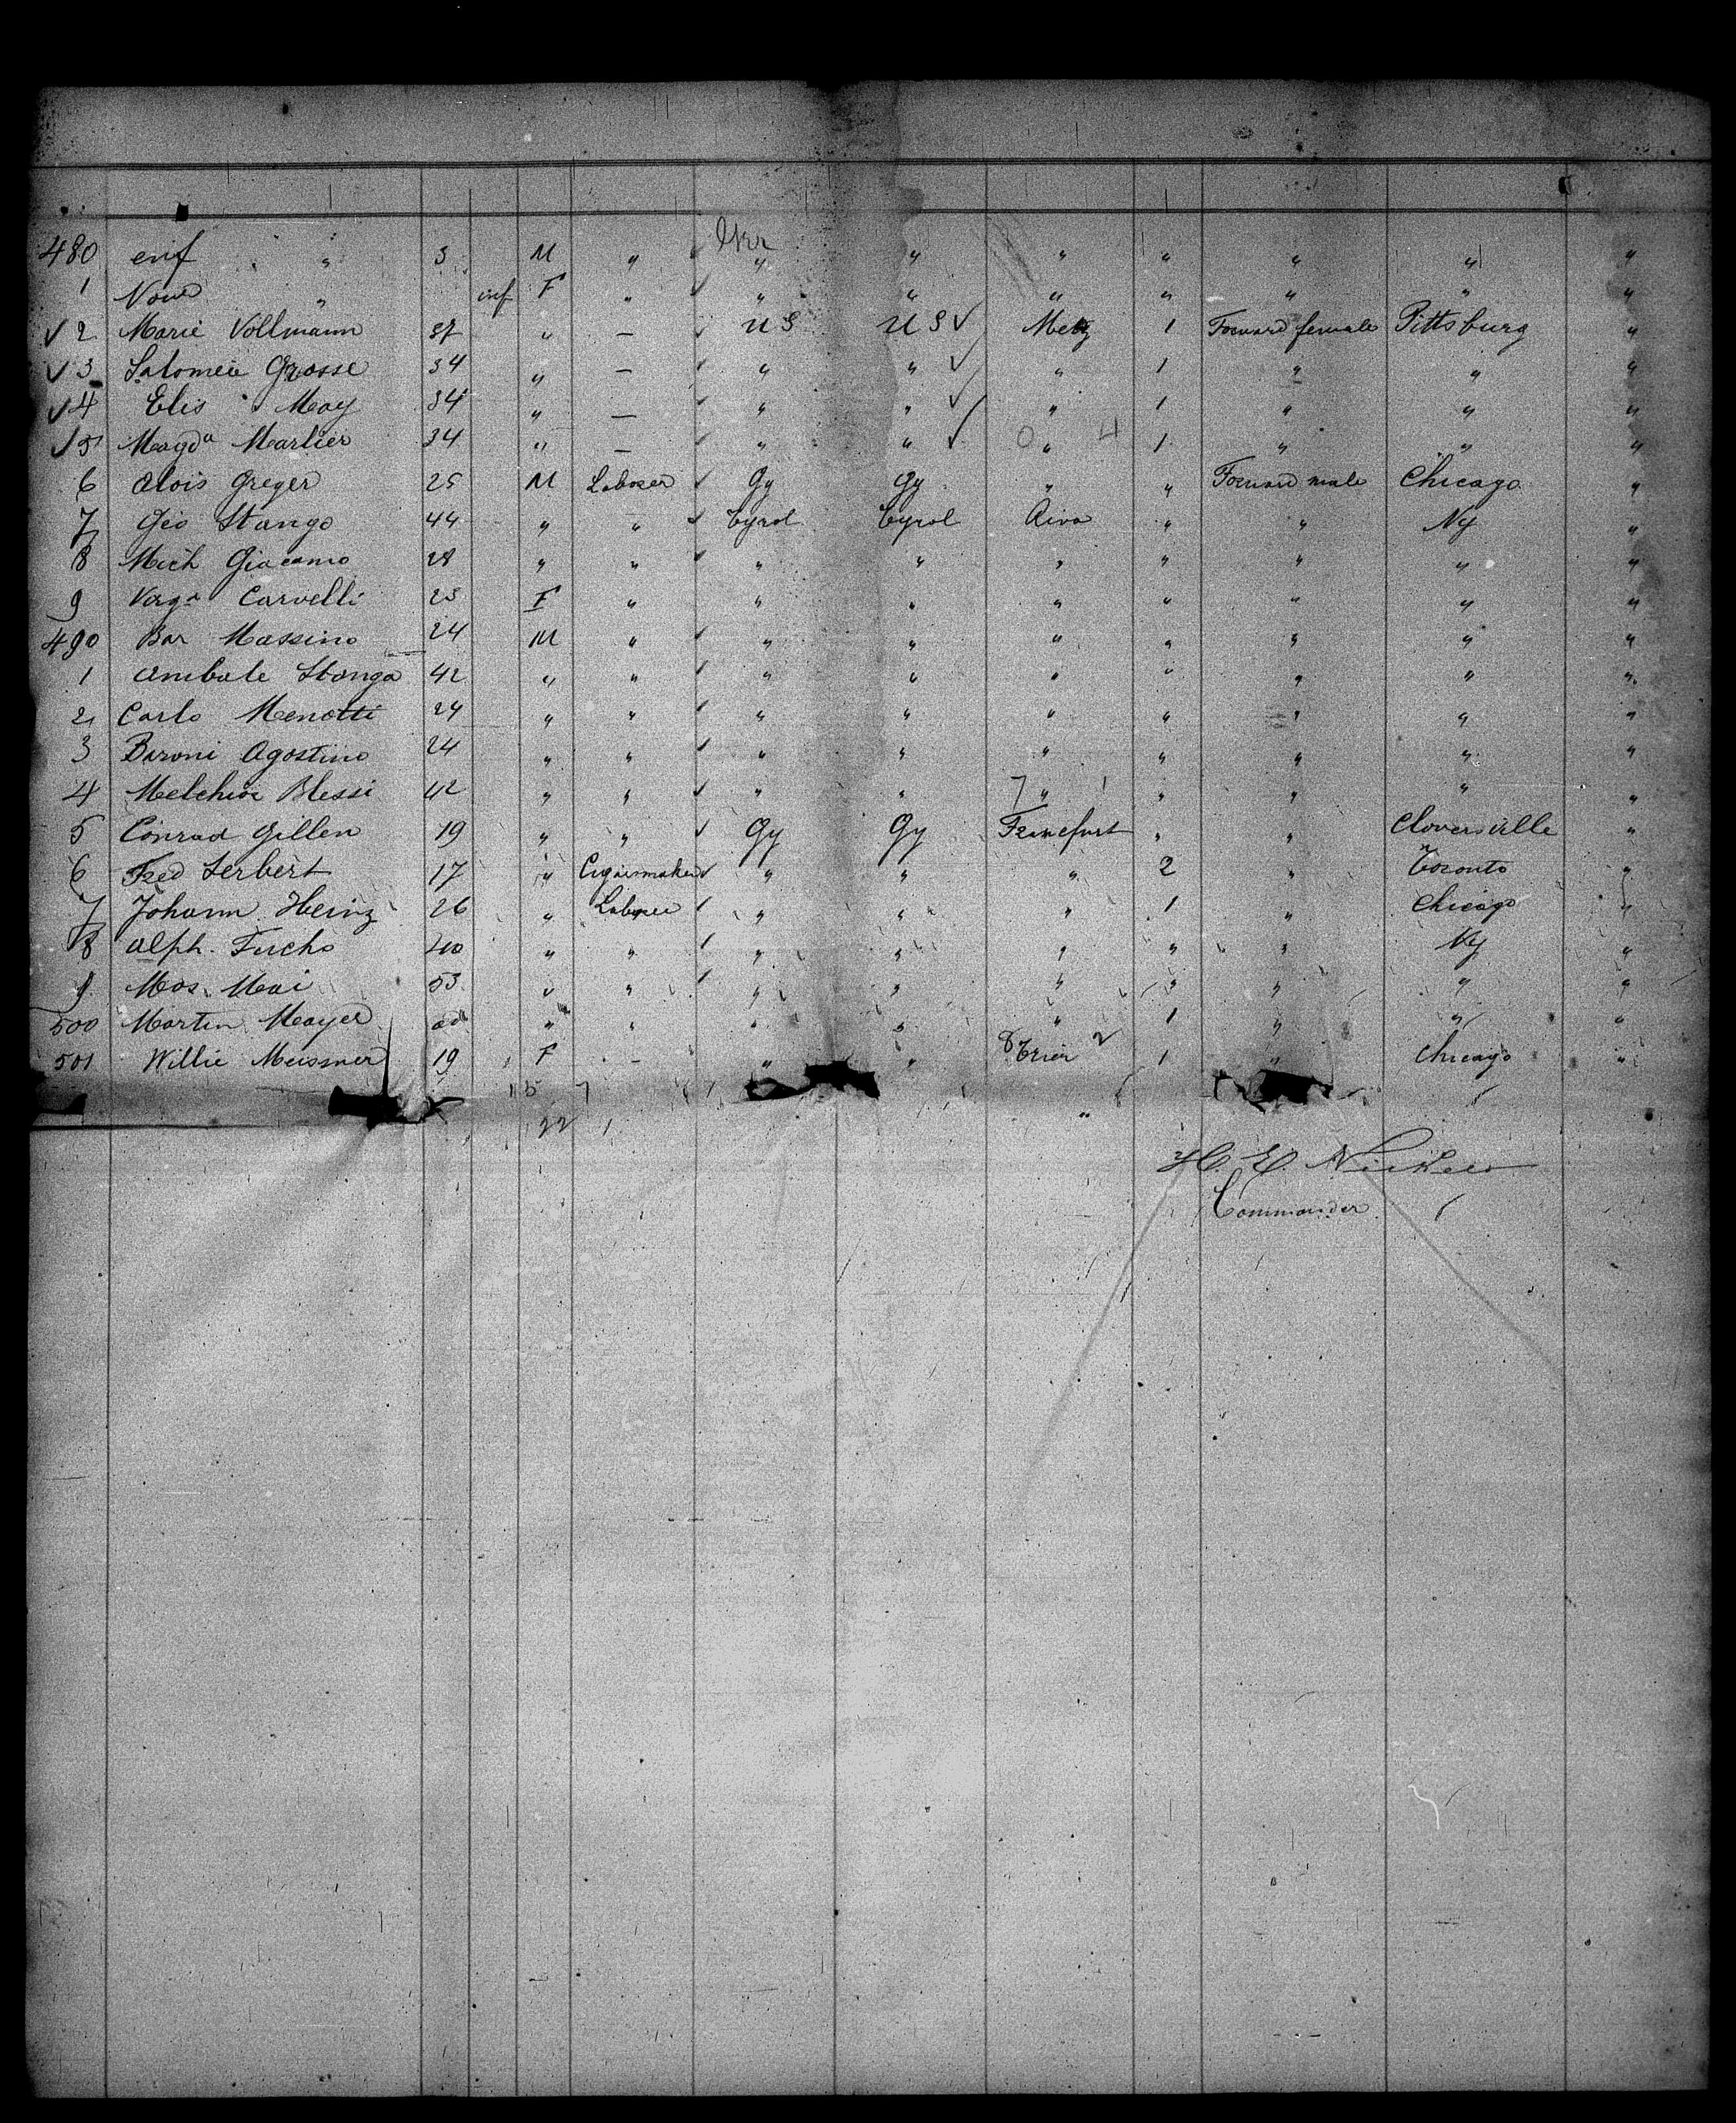 480 " 3 M " " " " " " " "
1 inf F " " " " " " " "
2 Marie Vollmann 37 " — U S U S Metz 1 Forward female Pittsburg "
3 Grosse 34 " — " " " 1 " " "
4 Elis May 34 " — " " " 1 " " "
5 Magda Marlier 34 " — " " " 1 " " "
6 Alois Greger 25 M Laborer Gy Gy " " Forward male Chicago "
7 Geo Stango 44 " " Tyrol Tyrol Riva " " Ny "
8 Mich Giacomo 28 " " " " " " " " "
9 Carvelli 23 F " " " " " " " "
490 Bar Massino 24 M " " " " " " " "
1 Anibale Stanga 42 " " " " " " " " "
2 Carlo Menotti 24 " " " " " " " " "
3 Baroni Agostino 24 " " " " " " " " "
4 Melchior Blessi 42 " " " " 7 " 1 " " " "
5 Conrad Gillen 19 " " Gy Gy Francfurt " " Cloversville "
6 Fred Serbert 17 " Cigarmaker " " " 2 " Toronto "
7 Johann Heinz 26 " Laborer " " " 1 " Chicago "
8 Alph. Fuchs 40 " " " " " " " Ny "
9 Mos. Mai 53 " " " " " " " " "
500 Martin Mayer " " " " " 1 " " "
501 Willie Meissner 19 F — " " 8 Trier 2 1 " Chicago "
15 7
22 "
Commander